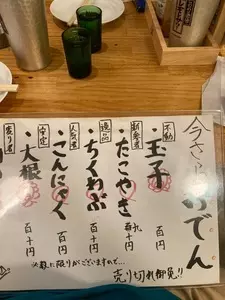 今さらおでん
不動
・玉子
百円
新参者
・たこやき
百九十円
逸品
・ちくわぶ
百円
人気者
・こんにゃく
百円
安定
・大根
百十円
売り者
※数に限りがございますので…
売り切れ御免!!